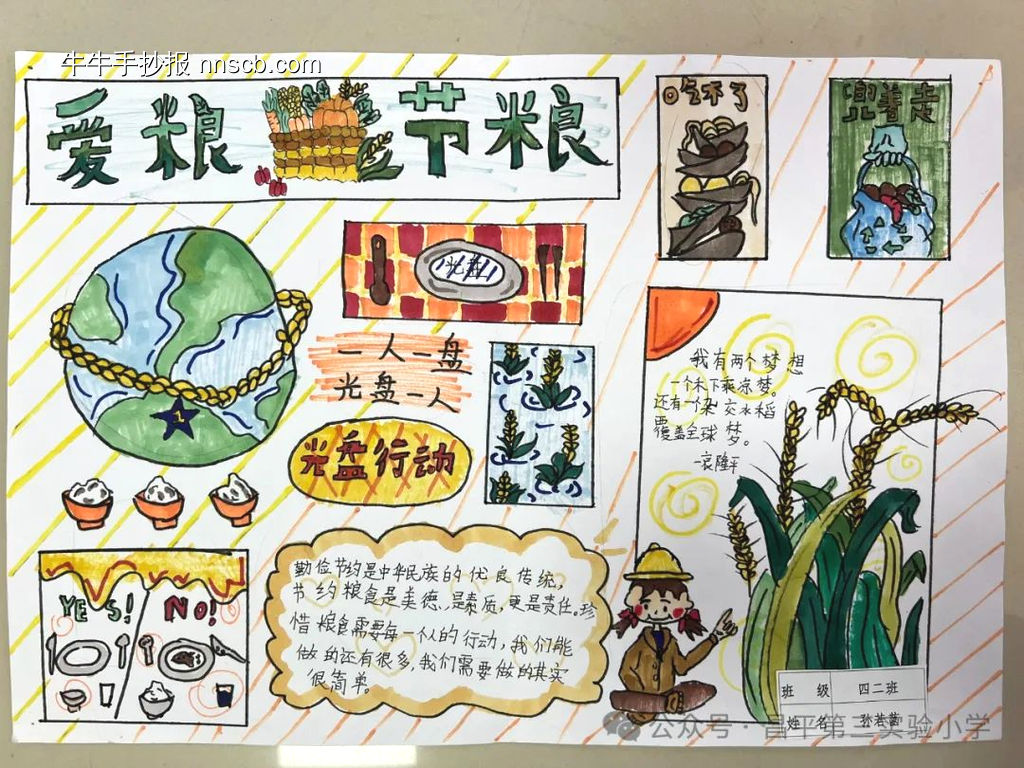 牛牛手抄报 nnscb.com
爱粮 节粮
吃不了
兜着走
光盘
一人一盘
光盘一人
光盘行动
我有两个梦想
一个禾下乘凉梦。
还有一个杂交水稻
覆盖全球梦。
—袁隆平
YES!
NO!
勤俭节约是中华民族的优良传统,
节约粮食是美德、是素质,更是责任。珍
惜粮食需要每一个人的行动,我们能
做的还有很多,我们需要做的其实
很简单。
班级 四二班
姓名
公众号·昌平第三实验小学